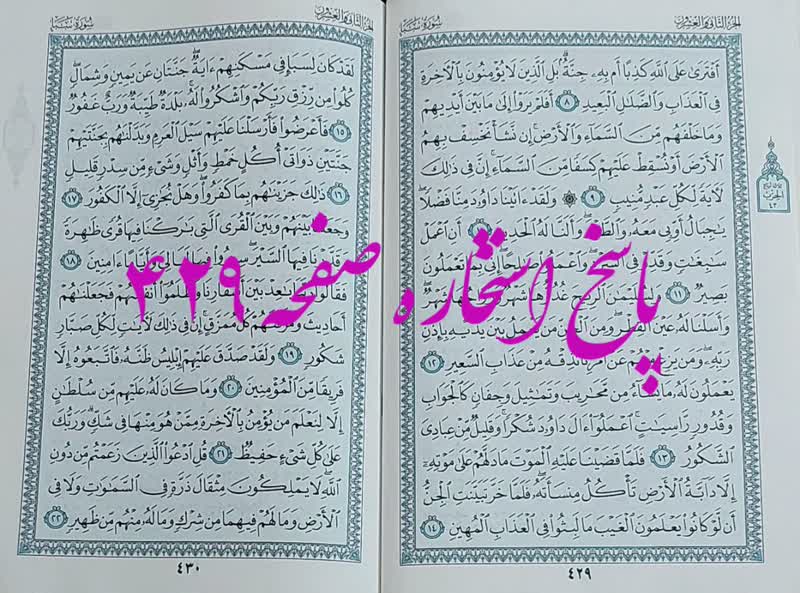 الجزء الثاني والعشرون
سورة سبإ
أَفْتَرَىٰ عَلَى ٱللَّهِ كَذِبًا أَم بِهِۦ جِنَّةٌۢ بَلِ ٱلَّذِينَ لَا يُؤْمِنُونَ بِٱلْأَخِرَةِ
فِي ٱلْعَذَابِ وَٱلضَّلَٰلِ ٱلْبَعِيدِ ٨ أَفَلَمْ يَرَوْا۟ إِلَىٰ مَا بَيْنَ أَيْدِيهِمْ
وَمَا خَلْفَهُم مِّنَ ٱلسَّمَآءِ وَٱلْأَرْضِ إِن نَّشَأْ نَخْسِفْ بِهِمُ
ٱلْأَرْضَ أَوْ نُسْقِطْ عَلَيْهِمْ كِسَفًا مِّنَ ٱلسَّمَآءِ إِنَّ فِي ذَٰلِكَ
لَأٓيَةً لِّكُلِّ عَبْدٍ مُّنِيبٍ ٩ ۞ وَلَقَدْ ءَاتَيْنَا دَاوُۥدَ مِنَّا فَضْلًا
يَٰجِبَالُ أَوِّبِي مَعَهُۥ وَٱلطَّيْرَ وَأَلَنَّا لَهُ ٱلْحَدِيدَ أَنِ ٱعْمَلْ
سَٰبِغَٰتٍ وَقَدِّرْ فِي ٱلسَّرْدِ وَٱعْمَلُوا۟ صَٰلِحًا إِنِّي بِمَا تَعْمَلُونَ
بَصِيرٌ ١١ وَلِسُلَيْمَٰنَ ٱلرِّيحَ غُدُوُّهَا شَهْرٌ وَرَوَاحُهَا شَهْرٌ
وَأَسَلْنَا لَهُۥ عَيْنَ ٱلْقِطْرِ وَمِنَ ٱلْجِنِّ مَن يَعْمَلُ بَيْنَ يَدَيْهِ بِإِذْنِ
رَبِّهِۦ وَمَن يَزِغْ مِنْهُمْ عَنْ أَمْرِنَا نُذِقْهُ مِنْ عَذَابِ ٱلسَّعِيرِ ١٢
يَعْمَلُونَ لَهُۥ مَا يَشَآءُ مِن مَّحَٰرِيبَ وَتَمَٰثِيلَ وَجِفَانٍ كَٱلْجَوَابِ
وَقُدُورٍ رَّاسِيَٰتٍ ٱعْمَلُوٓا۟ ءَالَ دَاوُۥدَ شُكْرًا وَقَلِيلٌ مِّنْ عِبَادِيَ
ٱلشَّكُورُ ١٣ فَلَمَّا قَضَيْنَا عَلَيْهِ ٱلْمَوْتَ مَا دَلَّهُمْ عَلَىٰ مَوْتِهِۦٓ
إِلَّا دَآبَّةُ ٱلْأَرْضِ تَأْكُلُ مِنسَأَتَهُۥ فَلَمَّا خَرَّ تَبَيَّنَتِ ٱلْجِنُّ
أَن لَّوْ كَانُوا۟ يَعْلَمُونَ ٱلْغَيْبَ مَا لَبِثُوا۟ فِي ٱلْعَذَابِ ٱلْمُهِينِ ١٤
٤٢٩
الجزء الثاني والعشرون
سورة سبإ
لَقَدْ كَانَ لِسَبَإٍ فِي مَسْكَنِهِمْ ءَايَةٌ جَنَّتَانِ عَن يَمِينٍ وَشِمَالٍ
كُلُوا۟ مِن رِّزْقِ رَبِّكُمْ وَٱشْكُرُوا۟ لَهُۥ بَلْدَةٌ طَيِّبَةٌ وَرَبٌّ غَفُورٌ
١٥ فَأَعْرَضُوا۟ فَأَرْسَلْنَا عَلَيْهِمْ سَيْلَ ٱلْعَرِمِ وَبَدَّلْنَٰهُم بِجَنَّتَيْهِمْ
جَنَّتَيْنِ ذَوَاتَيْ أُكُلٍ خَمْطٍ وَأَثْلٍ وَشَيْءٍ مِّن سِدْرٍ قَلِيلٍ
١٦ ذَٰلِكَ جَزَيْنَٰهُم بِمَا كَفَرُوا۟ وَهَلْ نُجَٰزِيٓ إِلَّا ٱلْكَفُورَ ١٧
وَجَعَلْنَا بَيْنَهُمْ وَبَيْنَ ٱلْقُرَى ٱلَّتِي بَٰرَكْنَا فِيهَا قُرًى ظَٰهِرَةً
وَقَدَّرْنَا فِيهَا ٱلسَّيْرَ سِيرُوا۟ فِيهَا لَيَالِيَ وَأَيَّامًا ءَامِنِينَ ١٨
فَقَالُوا۟ رَبَّنَا بَٰعِدْ بَيْنَ أَسْفَارِنَا وَظَلَمُوٓا۟ أَنفُسَهُمْ فَجَعَلْنَٰهُمْ
أَحَادِيثَ وَمَزَّقْنَٰهُمْ كُلَّ مُمَزَّقٍ إِنَّ فِي ذَٰلِكَ لَأٓيَٰتٍ لِّكُلِّ صَبَّارٍ
شَكُورٍ ١٩ وَلَقَدْ صَدَّقَ عَلَيْهِمْ إِبْلِيسُ ظَنَّهُۥ فَٱتَّبَعُوهُ إِلَّا
فَرِيقًا مِّنَ ٱلْمُؤْمِنِينَ ٢٠ وَمَا كَانَ لَهُۥ عَلَيْهِم مِّن سُلْطَٰنٍ
إِلَّا لِنَعْلَمَ مَن يُؤْمِنُ بِٱلْأَخِرَةِ مِمَّنْ هُوَ مِنْهَا فِي شَكٍّ وَرَبُّكَ
عَلَىٰ كُلِّ شَيْءٍ حَفِيظٌ ٢١ قُلِ ٱدْعُوا۟ ٱلَّذِينَ زَعَمْتُم مِّن دُونِ
ٱللَّهِ لَا يَمْلِكُونَ مِثْقَالَ ذَرَّةٍ فِي ٱلسَّمَٰوَٰتِ وَلَا فِي
ٱلْأَرْضِ وَمَا لَهُمْ فِيهِمَا مِن شِرْكٍ وَمَا لَهُۥ مِنْهُم مِّن ظَهِيرٍ ٢٢
٤٣٠
پاسخ استخاره صفحه ۴۲۹